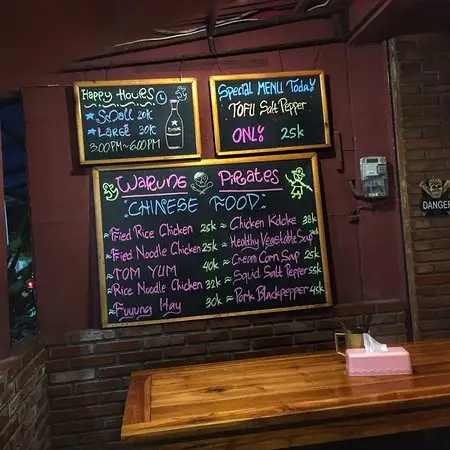 Happy Hours
Small 20k
Large 30k
3:00PM~6:00PM
Special MENU Today
TOFU Salt Pepper
ONLY 25k
WARUNG PIRATES
CHINESE FOOD
Fried Rice Chicken 25k
Fried Noodle Chicken 25k
TOM YUM 40k
Rice Noodle Chicken 32k
Fuyung Hay 30k
Chicken Kdcke 38k
Healthy Vegetable Soup
Cream Corn Soup 25k
Squid Salt Pepper 55k
Pork Blackpepper 45k
DANGER